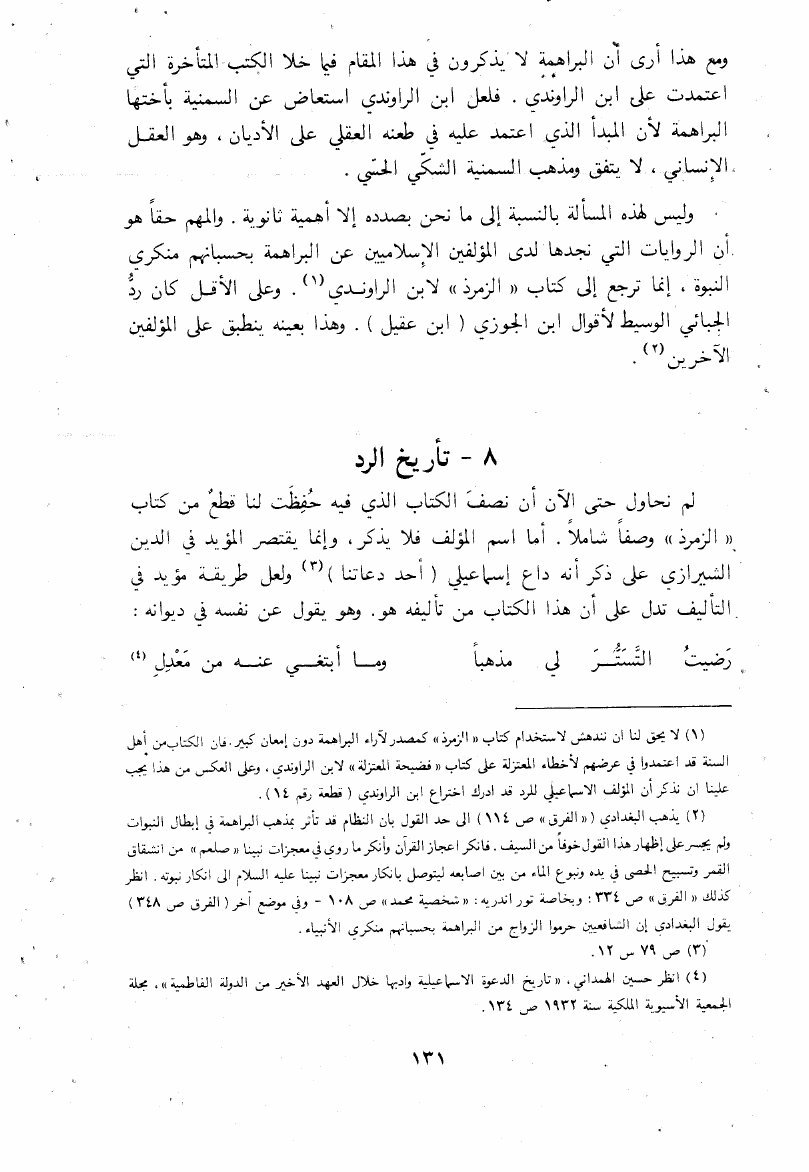 ومع هذا أرى أن البراهمة لا يذكرون في هذا المقام فيما خلا الكتب المتأخرة التي
اعتمدت على ابن الراوندي . فلعل ابن الراوندي استعاض عن السمنية بأختها
البراهمة لأن المبدأ الذي اعتمد عليه في طعنه العقلي على الأديان ، وهو العقـل
الإنساني ، لا يتفق ومذهب السمنية الشكّي الحسّي .
وليس لهذه المسألة بالنسبة إلى ما نحن بصدده إلا أهمية ثانوية . والمهم حقاً هو
أن الروايات التي نجدها لدى المؤلفين الإسلاميين عن البراهمة بحسبانهم منكري
النبوة ، إنما ترجع إلى كتاب « الزمرذ » لابن الراونـدي (١) . وعلى الأقـل كان ردُّ
الجبائي الوسيط لأقوال ابن الجوزي ( ابن عقيل ) . وهذا بعينه ينطبق على المؤلفين
الآخرين (٢) .
٨ - تأريخ الرد
لم نحاول حتى الآن أن نصفَ الكتاب الذي فيه حُفِظَت لنا قطعٌ من كتاب
« الزمرذ » وصفاً شاملاً . أما اسم المؤلف فلا يذكر، وإنما يقتصر المؤيد في الدين
الشيرازي على ذكر أنه داع إسماعيلي ( أحد دعاتنا ) (٣) ولعل طريقـة مؤيد في
التأليف تدل على أن هذا الكتاب من تأليفه هو. وهو يقول عن نفسه في ديوانه :
رَضيتُ التَّسَتُّـرَ لي مذهباً ومـا أبتغـي عنـه من مَعْدِلِ (٤)
(١) لا يحق لنا ان نندهش لاستخدام كتاب « الزمرذ » كمصدر لآراء البراهمة دون إمعان كبير. فان الكتاب من أهل
السنة قد اعتمدوا في عرضهم لأخطاء المعتزلة على كتاب « فضيحة المعتزلة » لابن الراوندي، وعلى العكس من هذا يجب
علينا ان نذكر أن المؤلف الاسماعيلي للرد قد ادرك اختراع ابن الراوندي ( قطعة رقم ١٤ ) .
(٢) يذهب البغدادي ( « الفرق » ص ١١٤ ) الى حد القول بان النظام قد تأثر بمذهب البراهمة في إبطال النبوات
ولم يجسر على إظهار هذا القول خوفاً من السيف . فانكر اعجاز القرآن وأنكر ما روي في معجزات نبينا « صلعم » من انشقاق
القمر وتسبيح الحصى في يده ونبوع الماء من بين اصابعه ليتوصل بانكار معجزات نبينا عليه السلام الى انكار نبوته . انظر
كذلك « الفرق » ص ٣٣٤ : وبخاصة تور اندريه : « شخصية محمد » ص ١٠٨ - وفي موضع آخر ( الفرق ص ٣٤٨ )
يقول البغدادي إن الشافعيين حرموا الزواج من البراهمة بحسبانهم منكري الأنبياء .
(٣) ص ٧٩ س ١٢ .
(٤) انظر حسين الهمداني ، « تاريخ الدعوة الاسماعيلية وادبها خلال العهد الأخير من الدولة الفاطمية » ، مجلة
الجمعية الأسيوية الملكية سنة ١٩٣٢ ص ١٣٤ .
١٣١